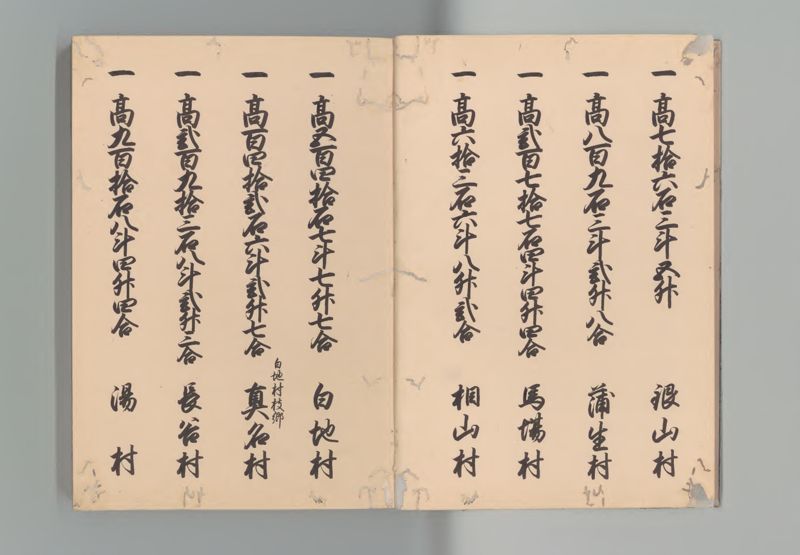 一 高七拾六石三斗五升 銀山村
一 高八百九石三斗弐升八合 蒲生村
一 高弐百七拾七石四斗四升四合 馬場村
一 高六拾三石六斗八升弐合 桐山村
一 高五百四拾石七斗七升七合 白地村
一 高百四拾弐石六斗弐升七合 真名村
白地村枝郷
一 高弐百九拾三石八斗弐升三合 長谷村
一 高九百拾石八斗四升四合 湯村